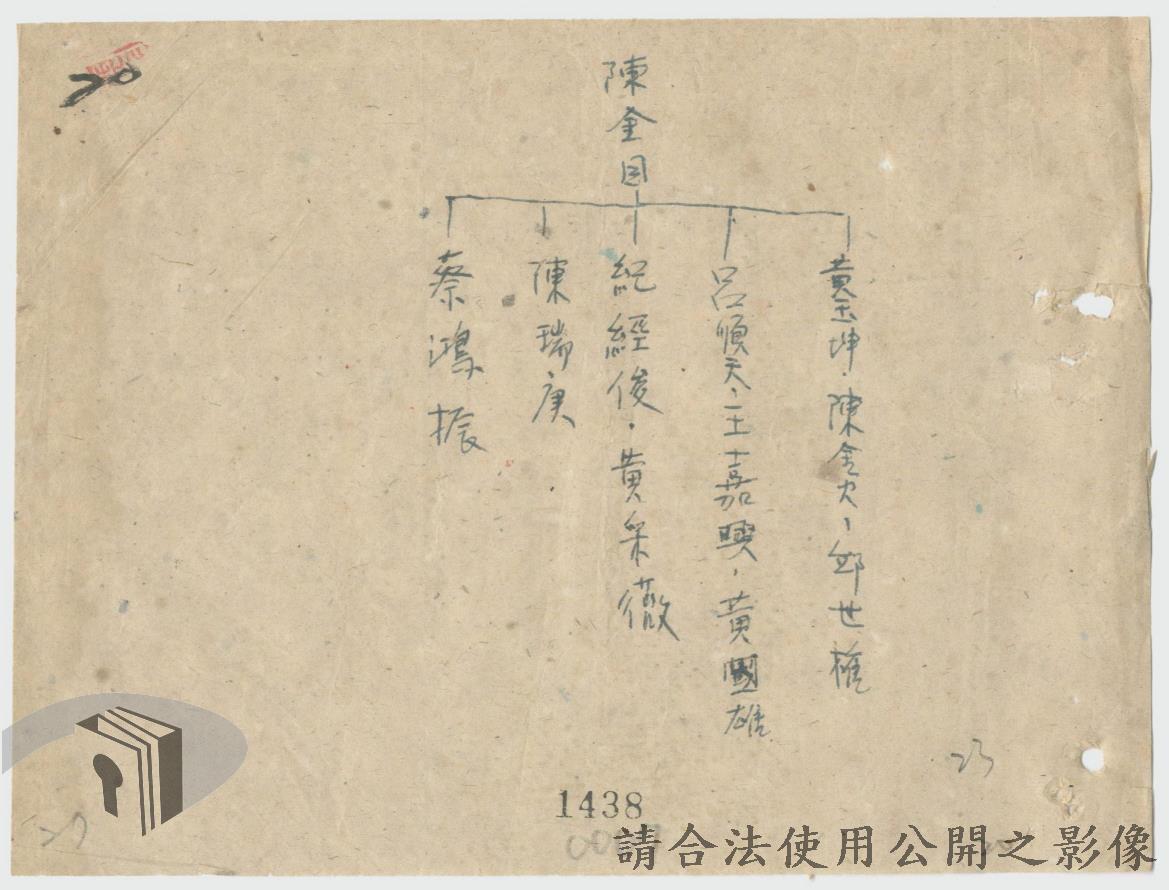 20
陳金目
黃玉坤、陳金火、邱世權
呂順天、王嘉興、黃國雄
紀經俊、黃采薇
陳瑞庚
蔡鴻振
23
27
1438
請合法使用公開之影像